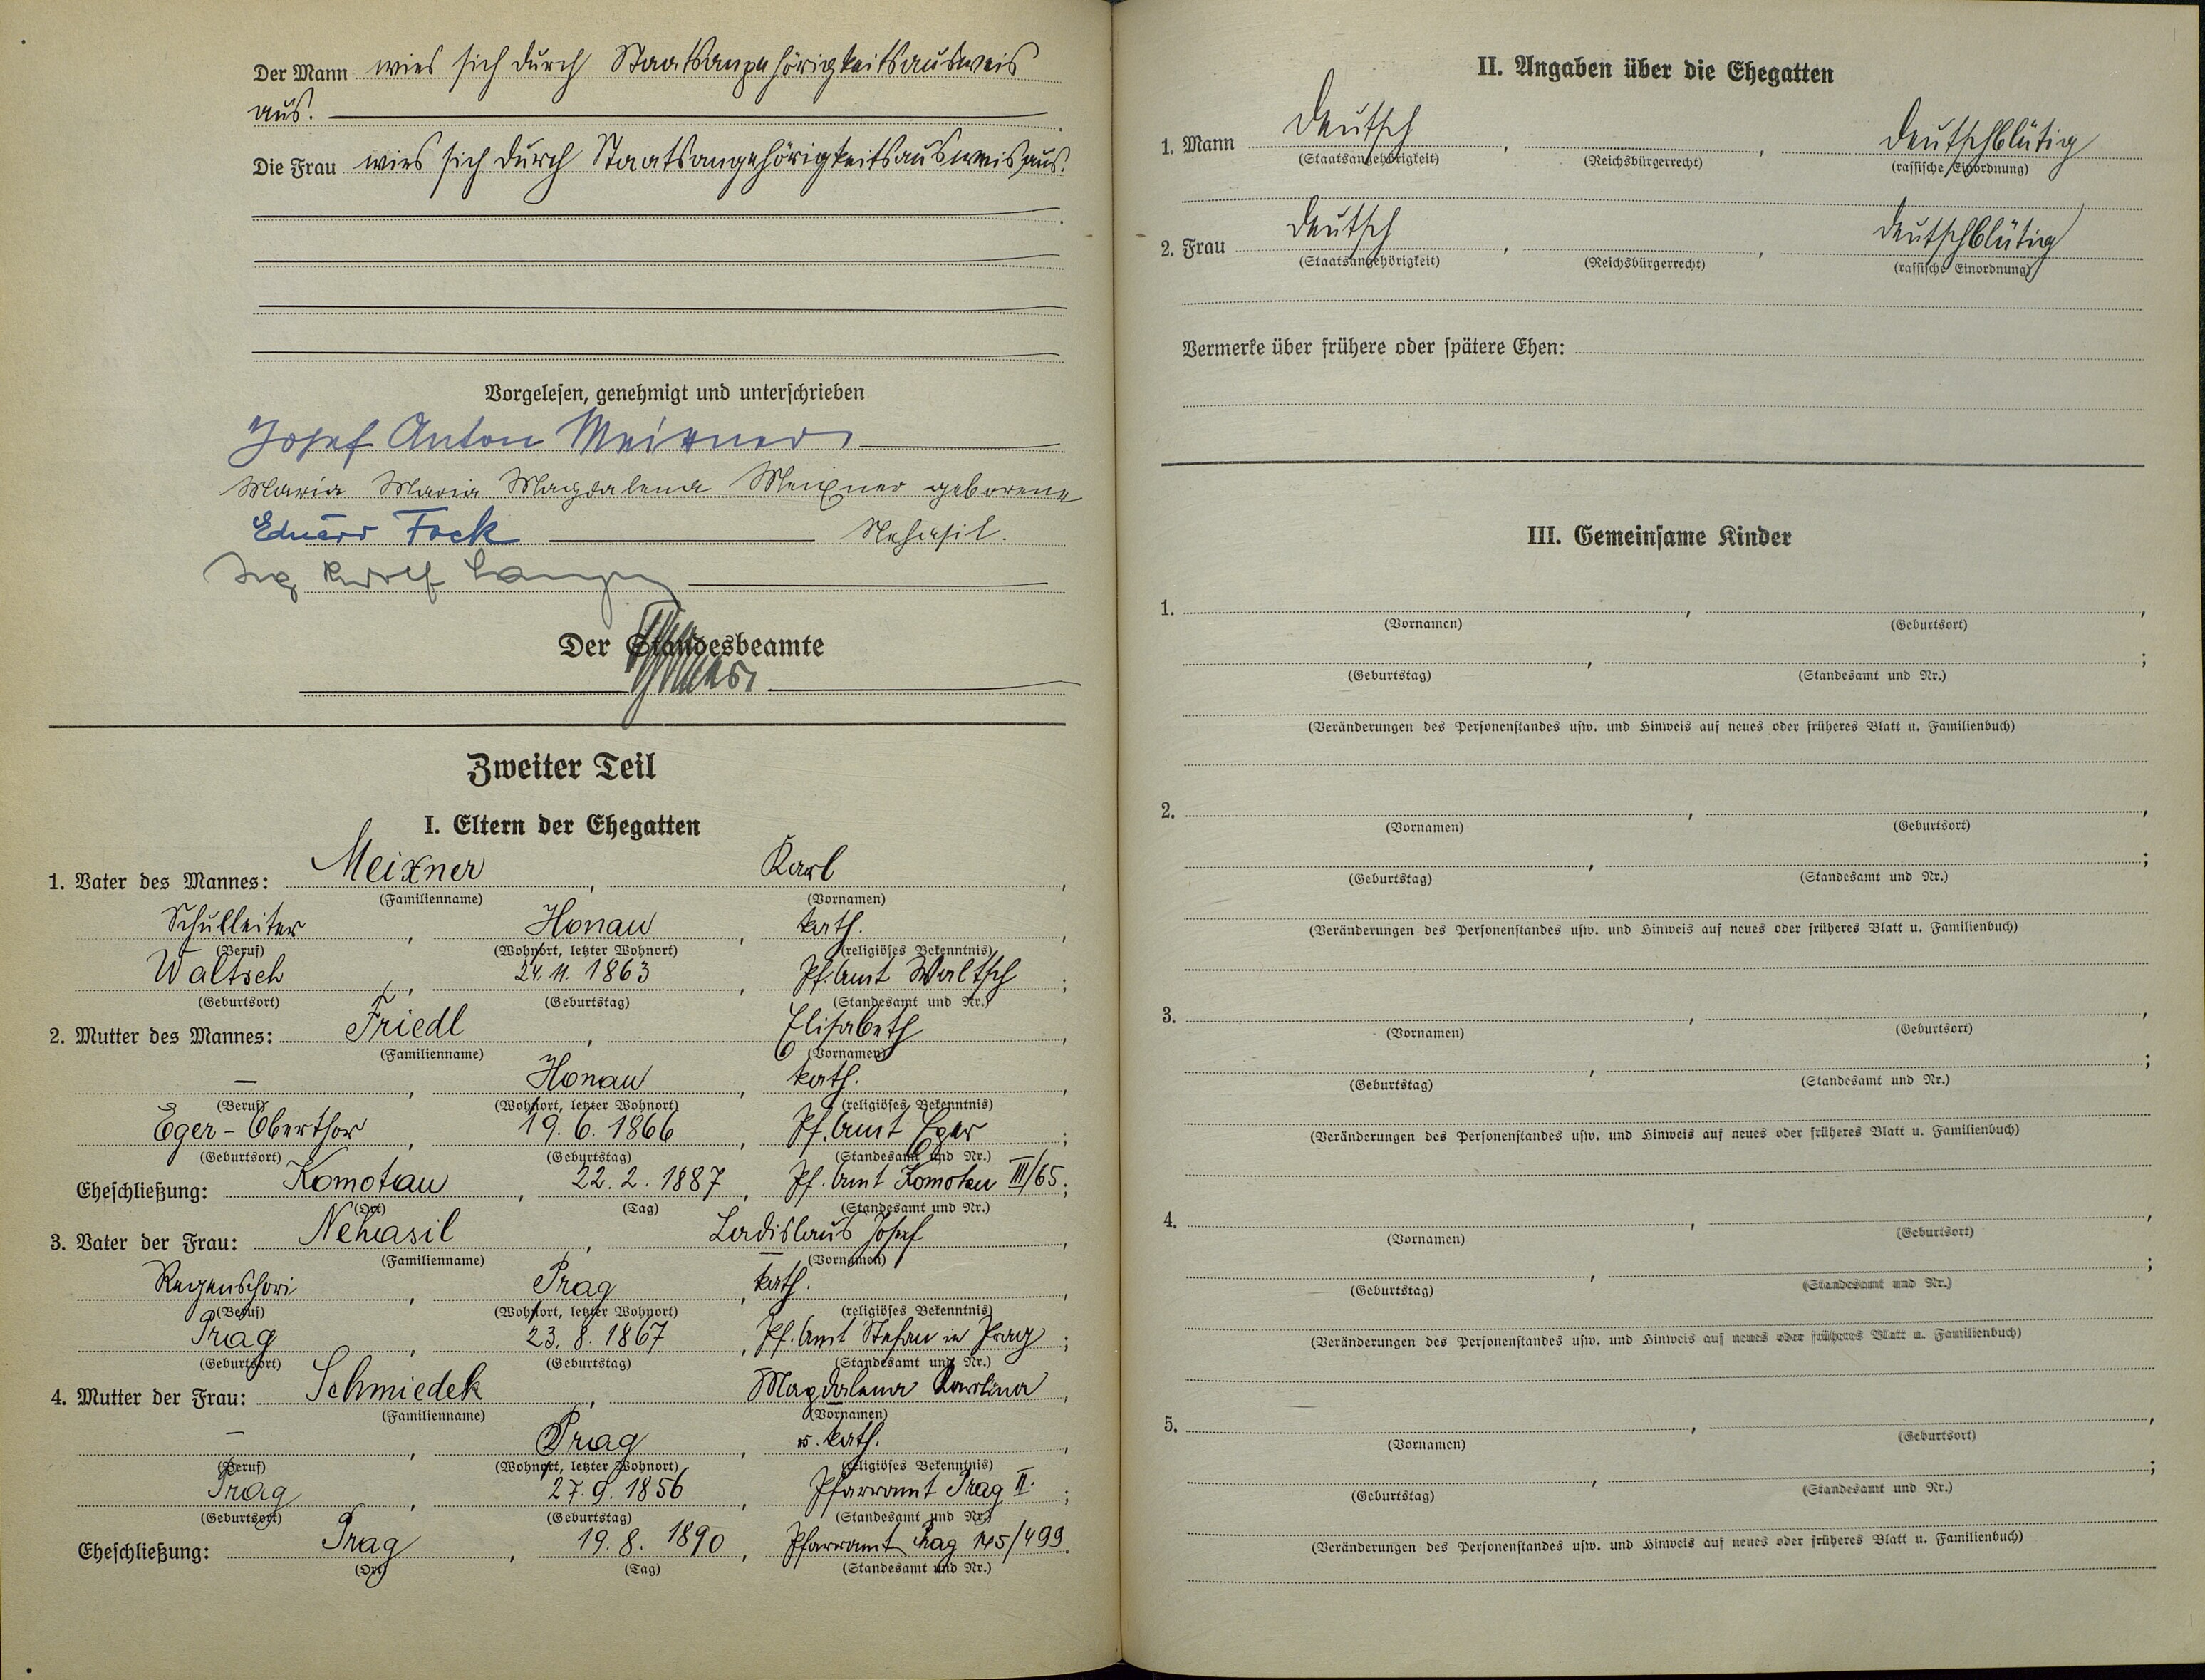 Der Mann wies sich durch Staatsangehörigkeitsausweis
aus.
Die Frau wies sich durch Staatsangehörigkeitsausweis aus.
Vorgelesen, genehmigt und unterschrieben
Josef Anton Meixner
Maria Maria Magdalena Meixner geborene
Eduard Fock Nehasil.
Ing. Rudolf
Der Standesbeamte
Zweiter Teil
I. Eltern der Ehegatten
1. Vater des Mannes: Meixner, Karl,
(Familienname) (Vornamen)
Schulleiter, Honau, kath.,
(Beruf) (Wohnort, letzter Wohnort) (religiöses Bekenntnis)
Waltsch, 24. 11. 1863, Pf. Amt Waltsch;
(Geburtsort) (Geburtstag) (Standesamt und Nr.)
2. Mutter des Mannes: Friedl, Elisabeth,
(Familienname) (Vornamen)
—, Honau, kath.,
(Beruf) (Wohnort, letzter Wohnort) (religiöses Bekenntnis)
Eger - Oberthor, 19. 6. 1866, Pf. Amt Eger;
(Geburtsort) (Geburtstag) (Standesamt und Nr.)
Eheschließung: Komotau, 22. 2. 1887, Pf. Amt Komotau III/65;
(Ort) (Tag) (Standesamt und Nr.)
3. Vater der Frau: Nehasil, Ladislaus Josef,
(Familienname) (Vornamen)
Regenschori, Prag, kath.,
(Beruf) (Wohnort, letzter Wohnort) (religiöses Bekenntnis)
Prag, 23. 8. 1867, Pf. Amt Stefan in Prag;
(Geburtsort) (Geburtstag) (Standesamt und Nr.)
4. Mutter der Frau: Schmiedek, Magdalena Karolina,
(Familienname) (Vornamen)
—, Prag, kath.,
(Beruf) (Wohnort, letzter Wohnort) (religiöses Bekenntnis)
Prag, 27. 9. 1856, Pfarramt Prag II.;
(Geburtsort) (Geburtstag) (Standesamt und Nr.)
Eheschließung: Prag, 19. 8. 1890, Pfarramt Prag /499.
(Ort) (Tag) (Standesamt und Nr.)
II. Angaben über die Ehegatten
1. Mann deutsch, , deutschblütig
(Staatsangehörigkeit) (Reichsbürgerrecht) (rassische Einordnung)
2. Frau deutsch, , deutschblütig
(Staatsangehörigkeit) (Reichsbürgerrecht) (rassische Einordnung)
Vermerke über frühere oder spätere Ehen:
III. Gemeinsame Kinder
1. , ,
(Vornamen) (Geburtsort)
, ;
(Geburtstag) (Standesamt und Nr.)
(Veränderungen des Personenstandes usw. und Hinweis auf neues oder früheres Blatt u. Familienbuch)
2. , ,
(Vornamen) (Geburtsort)
, ;
(Geburtstag) (Standesamt und Nr.)
(Veränderungen des Personenstandes usw. und Hinweis auf neues oder früheres Blatt u. Familienbuch)
3. , ,
(Vornamen) (Geburtsort)
, ;
(Geburtstag) (Standesamt und Nr.)
(Veränderungen des Personenstandes usw. und Hinweis auf neues oder früheres Blatt u. Familienbuch)
4. , ,
(Vornamen) (Geburtsort)
, ;
(Geburtstag) (Standesamt und Nr.)
(Veränderungen des Personenstandes usw. und Hinweis auf neues oder früheres Blatt u. Familienbuch)
5. , ,
(Vornamen) (Geburtsort)
, ;
(Geburtstag) (Standesamt und Nr.)
(Veränderungen des Personenstandes usw. und Hinweis auf neues oder früheres Blatt u. Familienbuch)